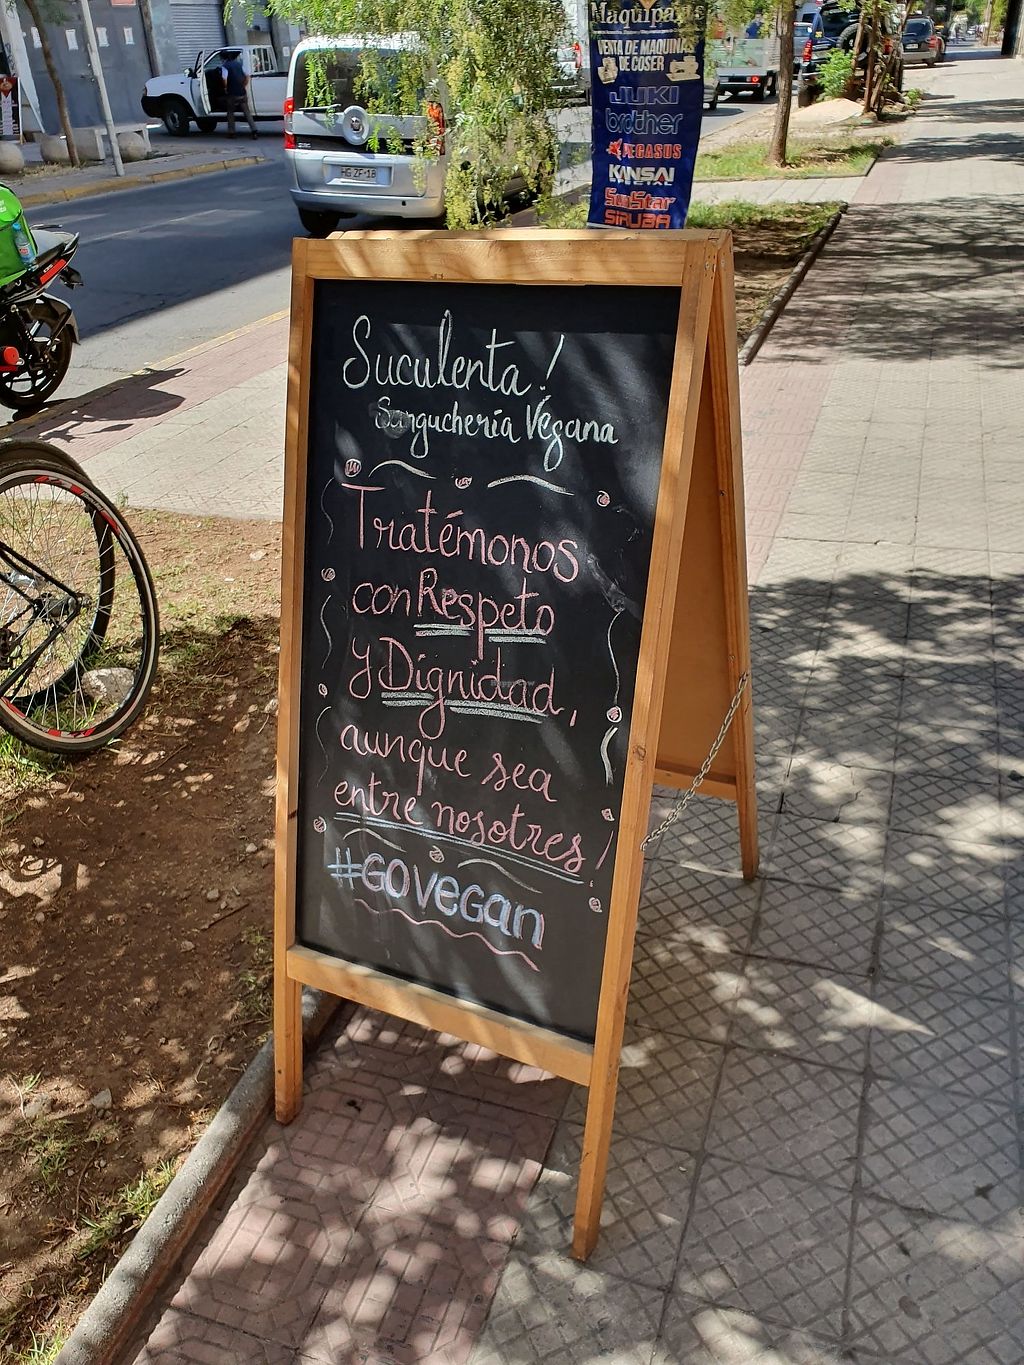 Maquipar
VENTA DE MAQUINAS
DE COSER
JUKI
brother
PEGASUS
KANSAI
SPECIAL
SunStar
SIRUBA
HG ZF 18
Suculenta!
Sanguchería Vegana
Tratémonos
con Respeto
y Dignidad,
aunque sea
entre nosotres!
#GOVEGAN